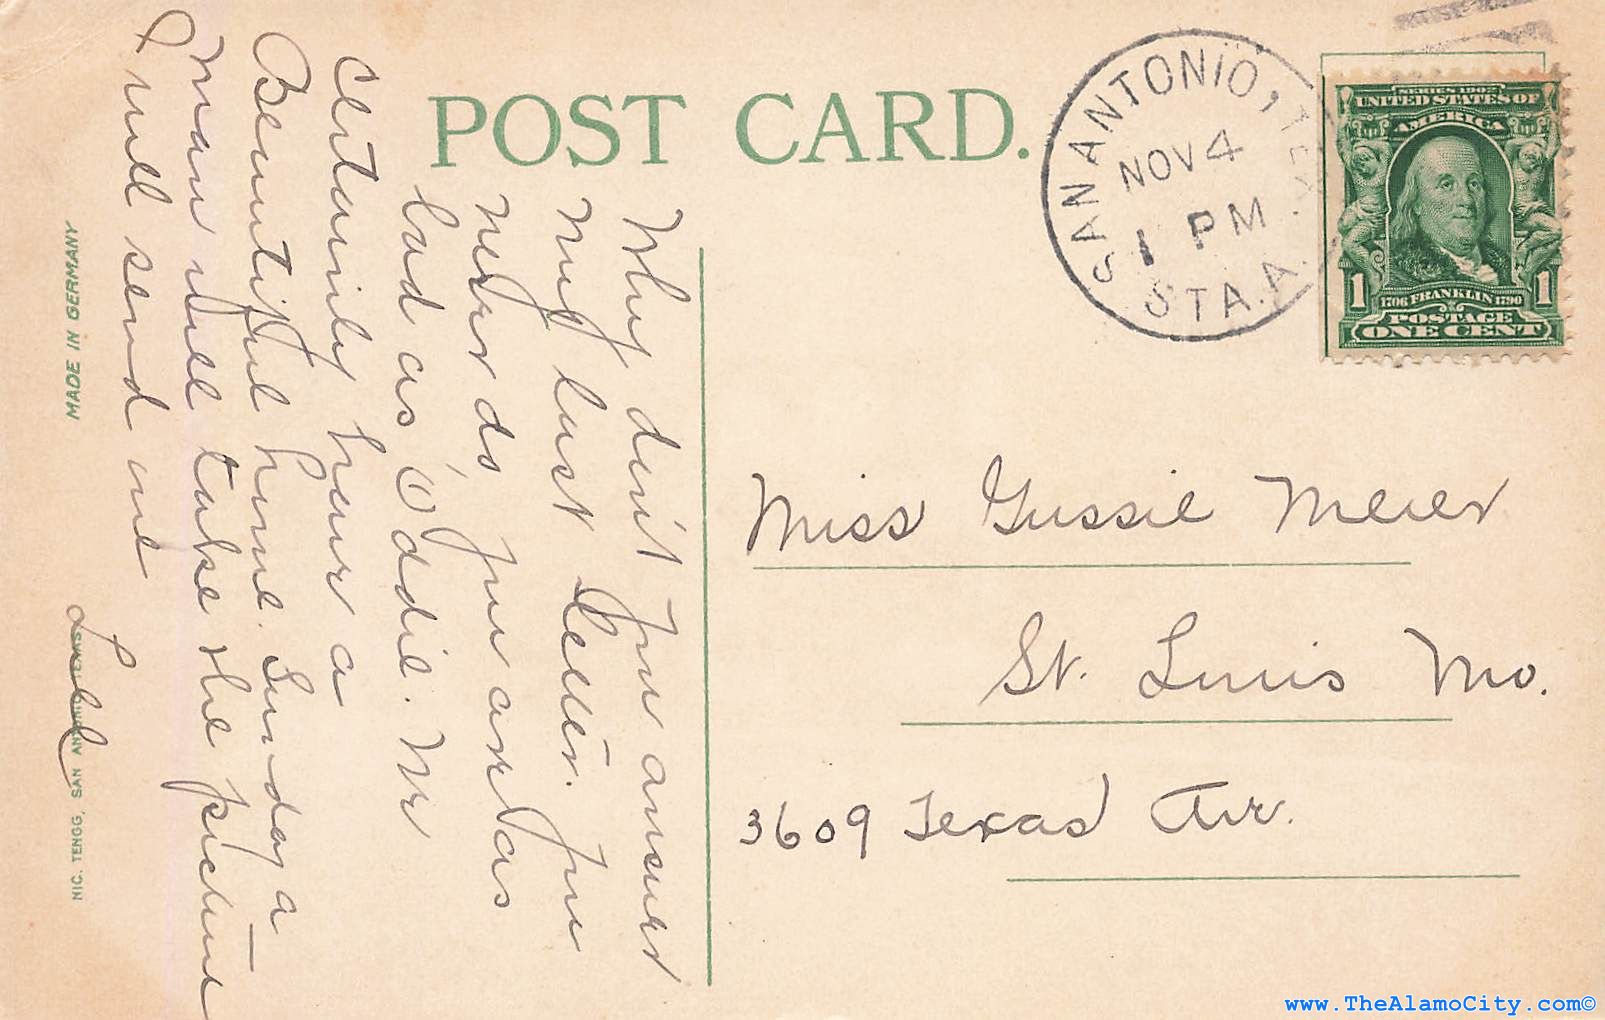 POST CARD.
SAN ANTONIO, TEX.
NOV 4
1 PM
STA. A.
SERIES 1902
UNITED STATES OF
AMERICA
1706 FRANKLIN 1790
1 1
POSTAGE
ONE CENT
Why don't you answer
my last letter. You
never do you are as
bad as Oddie. We
certainly have a
Beautiful home. Sunday a
man will take the picture
I will send one
Lee
Miss Gussie Meier
St. Louis Mo.
3609 Texas Av.
MADE IN GERMANY
NIC. TENGG, SAN ANTONIO, TEXAS
www.TheAlamoCity.com©